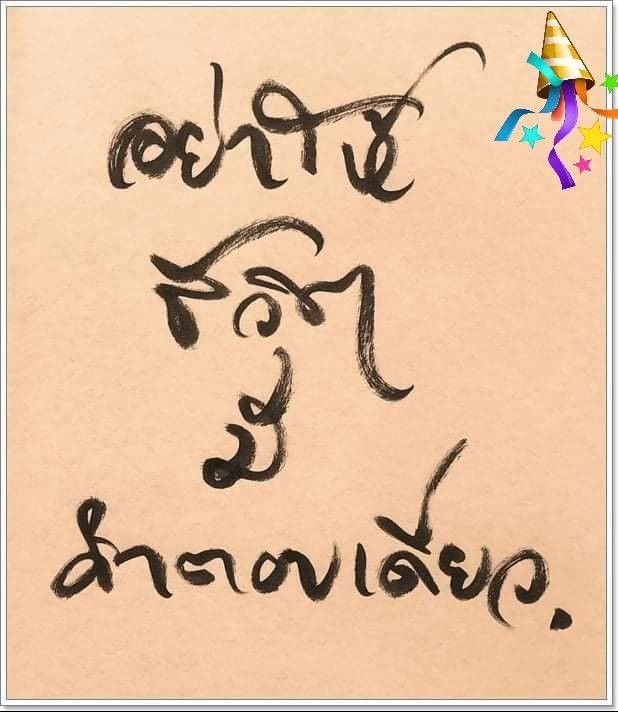 อย่าให้
ชีวิต
มี
คำตอบเดียว.